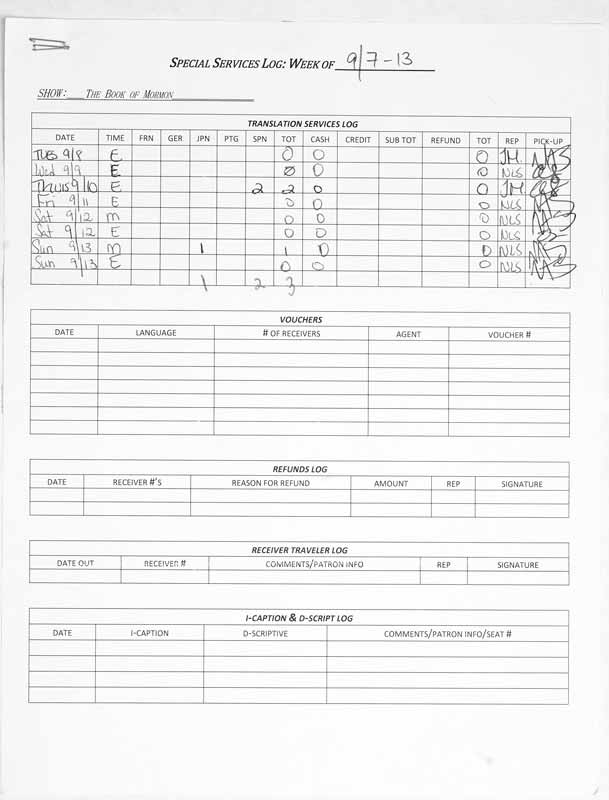 SPECIAL SERVICES LOG: WEEK OF 9/7-13
SHOW: THE BOOK OF MORMON
TRANSLATION SERVICES LOG
DATE TIME FRN GER JPN PTG SPN TOT CASH CREDIT SUB TOT REFUND TOT REP PICK-UP
TUES 9/8 E 0 0 0 J.M. NAS
Wed 9/9 E 0 0 0 NLS
Thurs 9/10 E 2 2 0 0 J.M.
Fri 9/11 E 0 0 0 NLS
Sat 9/12 m 0 0 0 NLS
Sat 9/12 E 0 0 0 NLS
Sun 9/13 m 1 1 0 0 NLS
Sun 9/13 E 0 0 0 NLS
1 2 3
VOUCHERS
DATE LANGUAGE # OF RECEIVERS AGENT VOUCHER #
REFUNDS LOG
DATE RECEIVER #'S REASON FOR REFUND AMOUNT REP SIGNATURE
RECEIVER TRAVELER LOG
DATE OUT RECEIVER # COMMENTS/PATRON INFO REP SIGNATURE
I-CAPTION & D-SCRIPT LOG
DATE I-CAPTION D-SCRIPTIVE COMMENTS/PATRON INFO/SEAT #